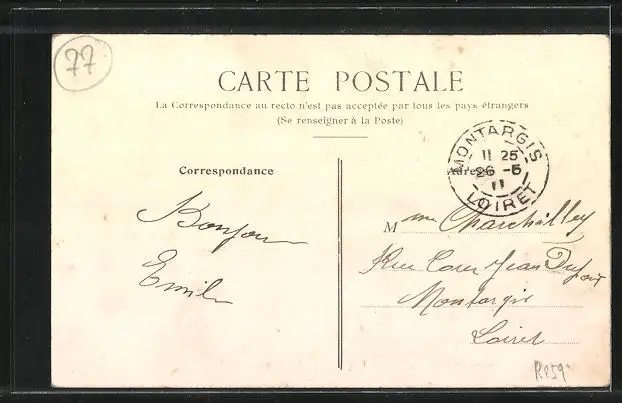 77
CARTE POSTALE
La Correspondance au recto n'est pas acceptée par tous les pays étrangers
(Se renseigner à la Poste)
Correspondance
Adresse
MONTARGIS
11 25
26 -5
11
LOIRET
Bonjour
Emile
M me Charchilley
Rue Cour Jean Dufour
Montargis
Loiret
R259